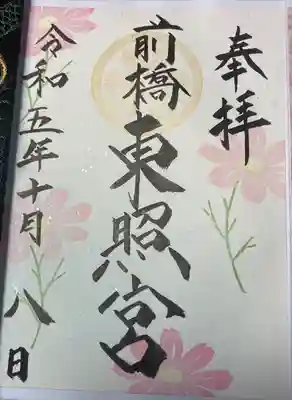 奉拝
前橋東照宮
令和五年十月八日